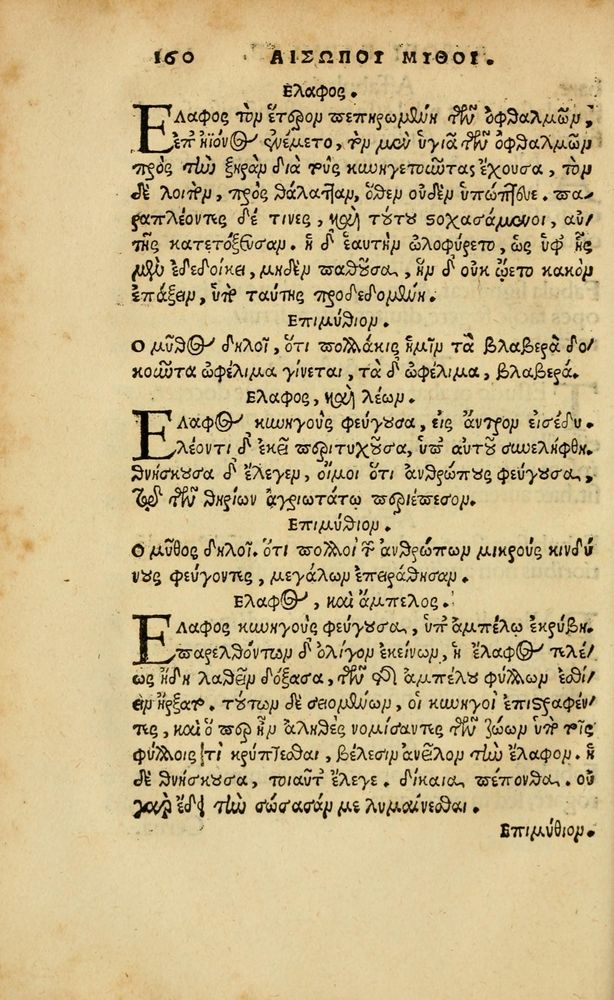 160 ΑΙΣΩΠΟΥ ΜΥΘΟΙ.
Ελαφος.
Ελαφος τὸν ἕτερον πεπηρωμένη τῶν ὀφθαλμῶν,
ἐπ' ἠϊόνος ἐνέμετο, τὸν μὲν ὑγιᾶ τῶν ὀφθαλμῶν
πρὸς τὴν ξηρὰν διὰ τοὺς κυνηγετοῦντας ἔχουσα, τὸν
δὲ λοιπὸν, πρὸς θάλατταν, ὅθεν οὐδὲν ὑπώπτευε. πα-
ραπλέοντες δέ τινες, καὶ τοῦτο στοχασάμενοι, αὐ-
τῆς κατετόξευσαν. ἡ δ' ἑαυτὴν ὠλοφύρετο, ὡς ὑφ' ἧς
μὲν ἐδεδοίκει, μηδὲν παθοῦσα, ἣν δ' οὐκ ᾤετο κακὸν
ἐπάξειν, ὑπὸ ταύτης προδεδομένη.
Επιμύθιον.
Ο μῦθος δηλοῖ, ὅτι πολλάκις ἡμῖν τὰ βλαβερὰ δο-
κοῦντα ὠφέλιμα γίνεται, τὰ δ' ὠφέλιμα, βλαβερά.
Ελαφος, καὶ λέων.
Ελαφος κυνηγοὺς φεύγουσα, εἰς ἄντρον εἰσέδυ.
λέοντι δ' ἐκεῖ περιτυχοῦσα, ὑπ' αὐτοῦ συνελήφθη.
θνήσκουσα δ' ἔλεγεν, οἴμοι ὅτι ἀνθρώπους φεύγουσα,
τῷ τῶν θηρίων ἀγριωτάτῳ περιέπεσον.
Επιμύθιον.
Ο μῦθος δηλοῖ. ὅτι πολλοὶ τῶν ἀνθρώπων μικροὺς κινδύ
νους φεύγοντες, μεγάλων ἐπειράθησαν.
Ελαφος, καὶ ἄμπελος.
Ελαφος κυνηγοὺς φεύγουσα, ὑπ' ἀμπέλω ἐκρύβη.
παρελθόντων δ' ὀλίγον ἐκείνων, ἡ ἔλαφος τελέ-
ως ἤδη λαθεῖν δόξασα, τῶν τῆς ἀμπέλου φύλλων ἐσθί-
ειν ἤρξατο. τούτων δὲ σειομένων, οἱ κυνηγοὶ ἐπιστραφέν
τες, καὶ ὅπερ ἦν ἀληθὲς νομίσαντες τῶν ζώων ὑπὸ τοῖς
φύλλοις τι κρύπτεσθαι, βέλεσιν ἀνεῖλον τὴν ἔλαφον. ἡ
δὲ θνήσκουσα, τοιαῦτ' ἔλεγε. δίκαια πέπονθα. οὐ
γὰρ ἔδει τὴν σώσασάν με λυμαίνεσθαι.
Επιμύθιον.